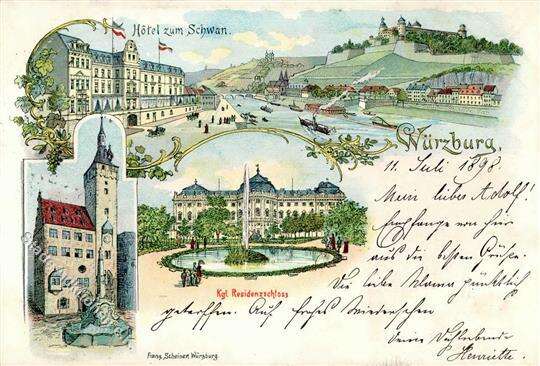 Hôtel zum Schwan.
Würzburg.
11. Juli 1898.
Mein liebes Adolf!
Empfange von hier
aus die besten Grüße.
Die liebe Mama pünktlich
getroffen. Auf frohes Wiedersehen
Deine
Henriette.
Kgl. Residenzschloss
Franz Scheiner, Würzburg.